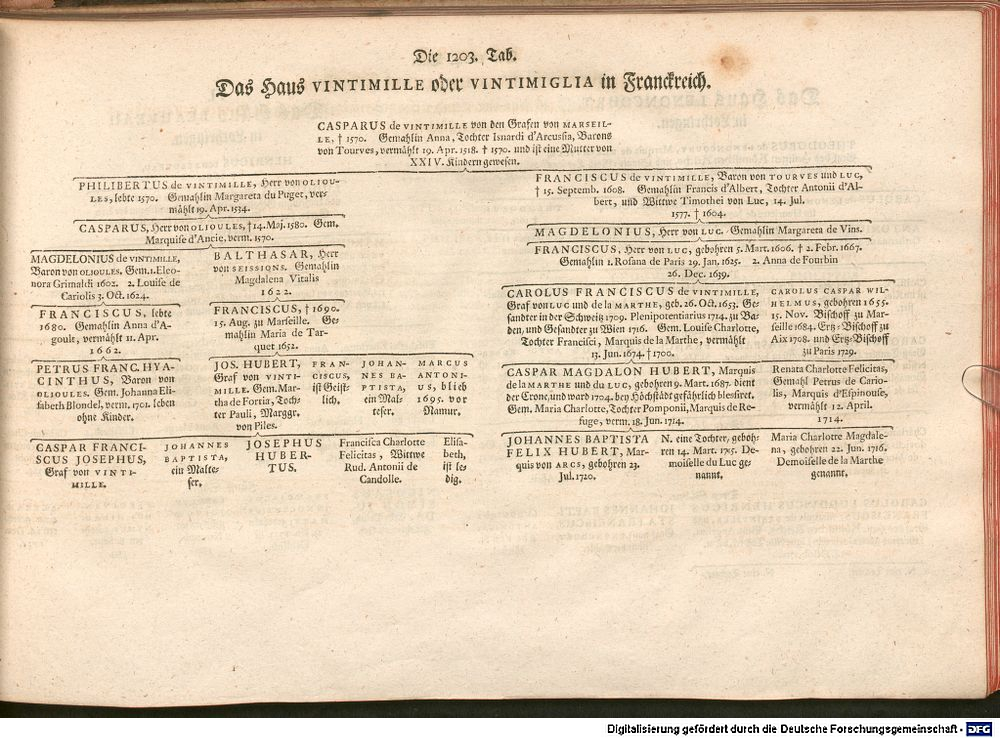 Die 1203. Tab.
Das Haus VINTIMILLE oder VINTIMIGLIA in Franckreich.
CASPARUS de VINTIMILLE von den Grafen von MARSEIL-
LE, † 1570. Gemahlin Anna, Tochter Isnardi d'Arcussia, Barons
von Tourves, vermählt 19. Apr. 1518. † 1570. und ist eine Mutter von
XXIV. Kindern gewesen.
PHILIBERTUS de VINTIMILLE, Herr von OLIOU-
LES, lebte 1570. Gemahlin Margareta du Puget, ver-
mählt 19. Apr. 1534.
CASPARUS, Herr von OLIOULES, † 14. Maj. 1580. Gem.
Marquise d'Ancie, verm. 1570.
MAGDELONIUS de VINTIMILLE,
Baron von OLIOULES. Gem. 1. Eleo-
nora Grimaldi 1602. 2. Louise de
Cariolis 3. Oct. 1624.
BALTHASAR, Herr
von SEISSIONS. Gemahlin
Magdalena Vitalis
1622.
FRANCISCUS, lebte
1680. Gemahlin Anna d'A-
goult, vermählt 11. Apr.
1662.
FRANCISCUS, † 1690.
15. Aug. zu Marseille. Ge-
mahlin Maria de Tar-
quet 1652.
PETRUS FRANC. HYA-
CINTHUS, Baron von
OLIOULES. Gem. Johanna Eli-
sabeth Blondel, verm. 1701. leben
ohne Kinder.
JOS. HUBERT,
Graf von VINTI-
MILLE. Gem. Mar-
tha de Fortia, Toch-
ter Pauli, Marggr.
von Piles.
FRAN-
CISCUS,
ist Geist-
lich.
JOHAN-
NES BA-
PTISTA,
ein Mal-
teser.
MARCUS
ANTONI-
US, blieb
1695. vor
Namur.
CASPAR FRANCI-
SCUS JOSEPHUS,
Graf von VINTI-
MILLE.
JOHANNES
BAPTISTA,
ein Malte-
ser.
JOSEPHUS
HUBER-
TUS.
Francisca Charlotte
Felicitas, Wittwe
Rud. Antonii de
Candolle.
Elisa-
beth,
ist le-
dig.
FRANCISCUS de VINTIMILLE, Baron von TOURVES und LUC,
† 15. Septemb. 1608. Gemahlin Francis d'Albert, Tochter Antonii d'Al-
bert, und Wittwe Timothei von Luc, 14. Jul.
1577. † 1604.
MAGDELONIUS, Herr von LUC. Gemahlin Margareta de Vins.
FRANCISCUS, Herr von LUC, gebohren 5. Mart. 1606. † 2. Febr. 1667.
Gemahlin 1. Rosana de Paris 29. Jan. 1625. 2. Anna de Fourbin
26. Dec. 1639.
CAROLUS FRANCISCUS de VINTIMILLE,
Graf von LUC und de la MARTHE, geb. 26. Oct. 1653. Ge-
sandter in der Schweitz 1709. Plenipotentiarius 1714. zu Ba-
den, und Gesandter zu Wien 1716. Gem. Louise Charlotte,
Tochter Francisci, Marquis de la Marthe, vermählt
13. Jun. 1674. † 1700.
CAROLUS CASPAR WIL-
HELMUS, gebohren 1655.
15. Nov. Bischoff zu Mar-
seille 1684. Ertz-Bischoff zu
Aix 1708. und Ertz-Bischoff
zu Paris 1729.
CASPAR MAGDALON HUBERT, Marquis
de la MARTHE und du LUC, gebohren 9. Mart. 1687. dient
der Crone, und ward 1704. bey Höchstädt gefährlich blessiret.
Gem. Maria Charlotte, Tochter Pomponii, Marquis de Re-
fuge, verm. 18. Jun. 1714.
Renata Charlotte Felicitas,
Gemahl Petrus de Cario-
lis, Marquis d'Espinouse,
vermählt 12. April.
1714.
JOHANNES BAPTISTA
FELIX HUBERT, Mar-
quis von ARCS, gebohren 23.
Jul. 1720.
N. eine Tochter, geboh-
ren 14. Mart. 1715. De-
moiselle du Luc ge-
nannt.
Maria Charlotte Magdale-
na, gebohren 22. Jun. 1716.
Demoiselle de la Marthe
genannt.
Digitalisierung gefördert durch die Deutsche Forschungsgemeinschaft - DFG